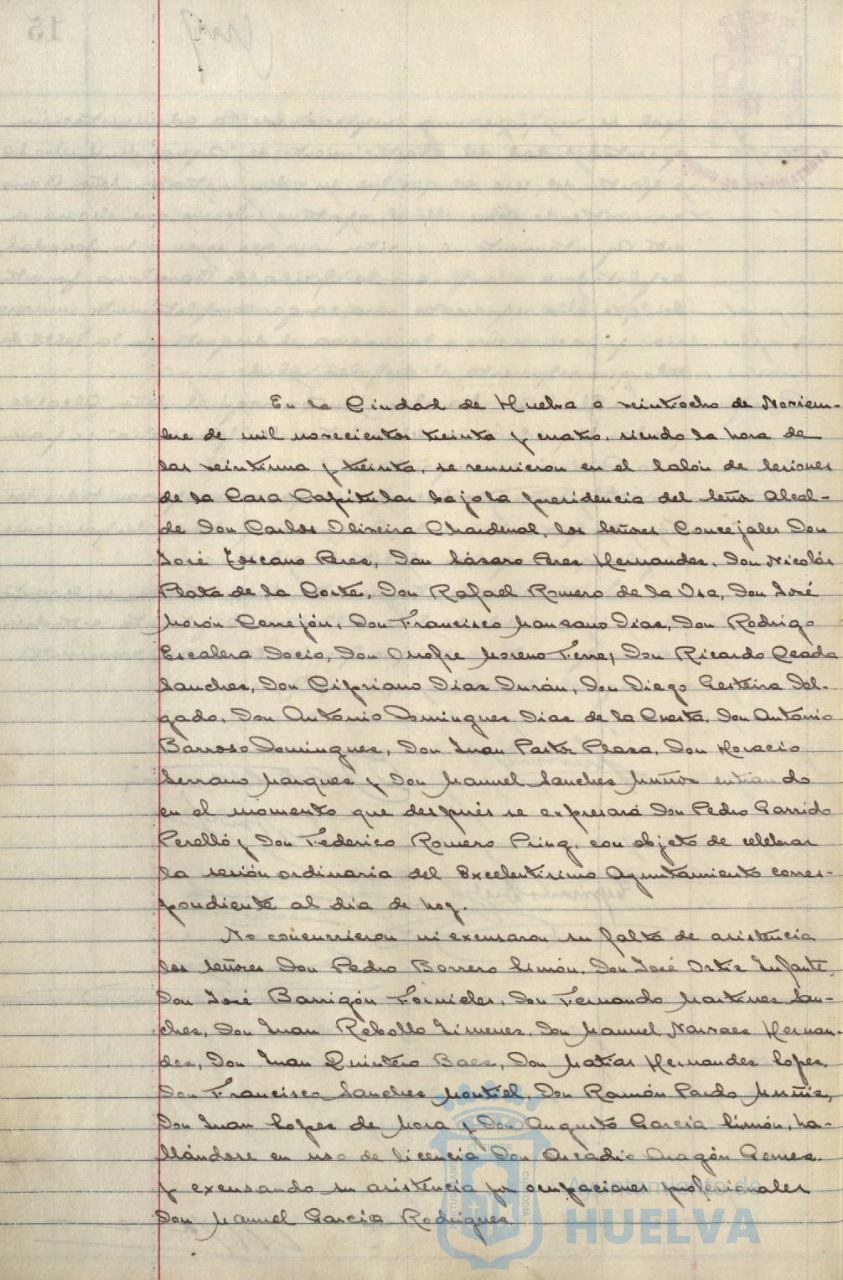 15
En la Ciudad de Huelva a veintiocho de Noviem-
bre de mil novecientos treinta y cuatro, siendo la hora de
las veintiuna y treinta, se reunieron en el Salón de Sesiones
de la Casa Capitular bajo la presidencia del Señor Alcal-
de Don Carlos Oliveira Chardenal, los Señores Concejales Don
José Toscano Peres, Don Lásaro Peres Hernandes, Don Nicolás
Plata de la Corte, Don Rafael Romero de la Osa, Don José
Morón Cerrejón, Don Francisco Mansano Dias, Don Rodrigo
Escalera Docio, Don Onofre Moreno Ferre, Don Ricardo Ceada
Sanches, Don Cipriano Dias Durán, Don Diego Gesteira Del-
gado, Don Antonio Domingues Dias de la Cuesta, Don Antonio
Barroso Domingues, Don Juan Pastor Plasa, Don Horacio
Serrano Marques y Don Manuel Sanches Muños entrando
en el momento que después se expresará Don Pedro Garrido
Perelló y Don Federico Romero Pring, con objeto de celebrar
la sesión ordinaria del Excelentísimo Ayuntamiento corres-
pondiente al dia de hoy.
No concurrieron ni excusaron su falta de asistencia
los Señores Don Pedro Borrero Limón, Don José Ortis Infante,
Don José Barrigón Fornieles, Don Fernando Martines San-
ches, Don Juan Rebollo Jimenes, Don Manuel Narvaes Hernan-
des, Don Juan Quintero Baes, Don Matías Hernandes Lopes,
Don Francisco Sanches Montiel, Don Ramón Pardo Muñis,
Don Juan Lopes de Mora y Don Augusto García Limón, ha-
llándose en uso de licencia Don Arcadio Aragón Gomes,
y excusando su asistencia por ocupaciones profesionales
Don Manuel García Rodrigues.
HUELVA